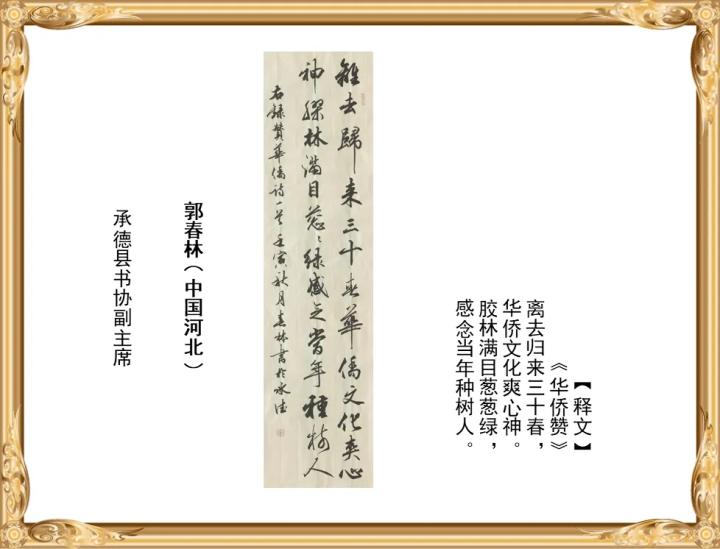 【释文】
《华侨赞》
离去归来三十春，
华侨文化爽心神。
胶林满目葱葱绿，
感念当年种树人。
離去歸来三十春華僑文化爽心
神膠林满目葱〻绿感念當年種树人
右録贊華僑诗一首壬寅秋月春林書於承德
郭春林（中国河北）
承德县书协副主席